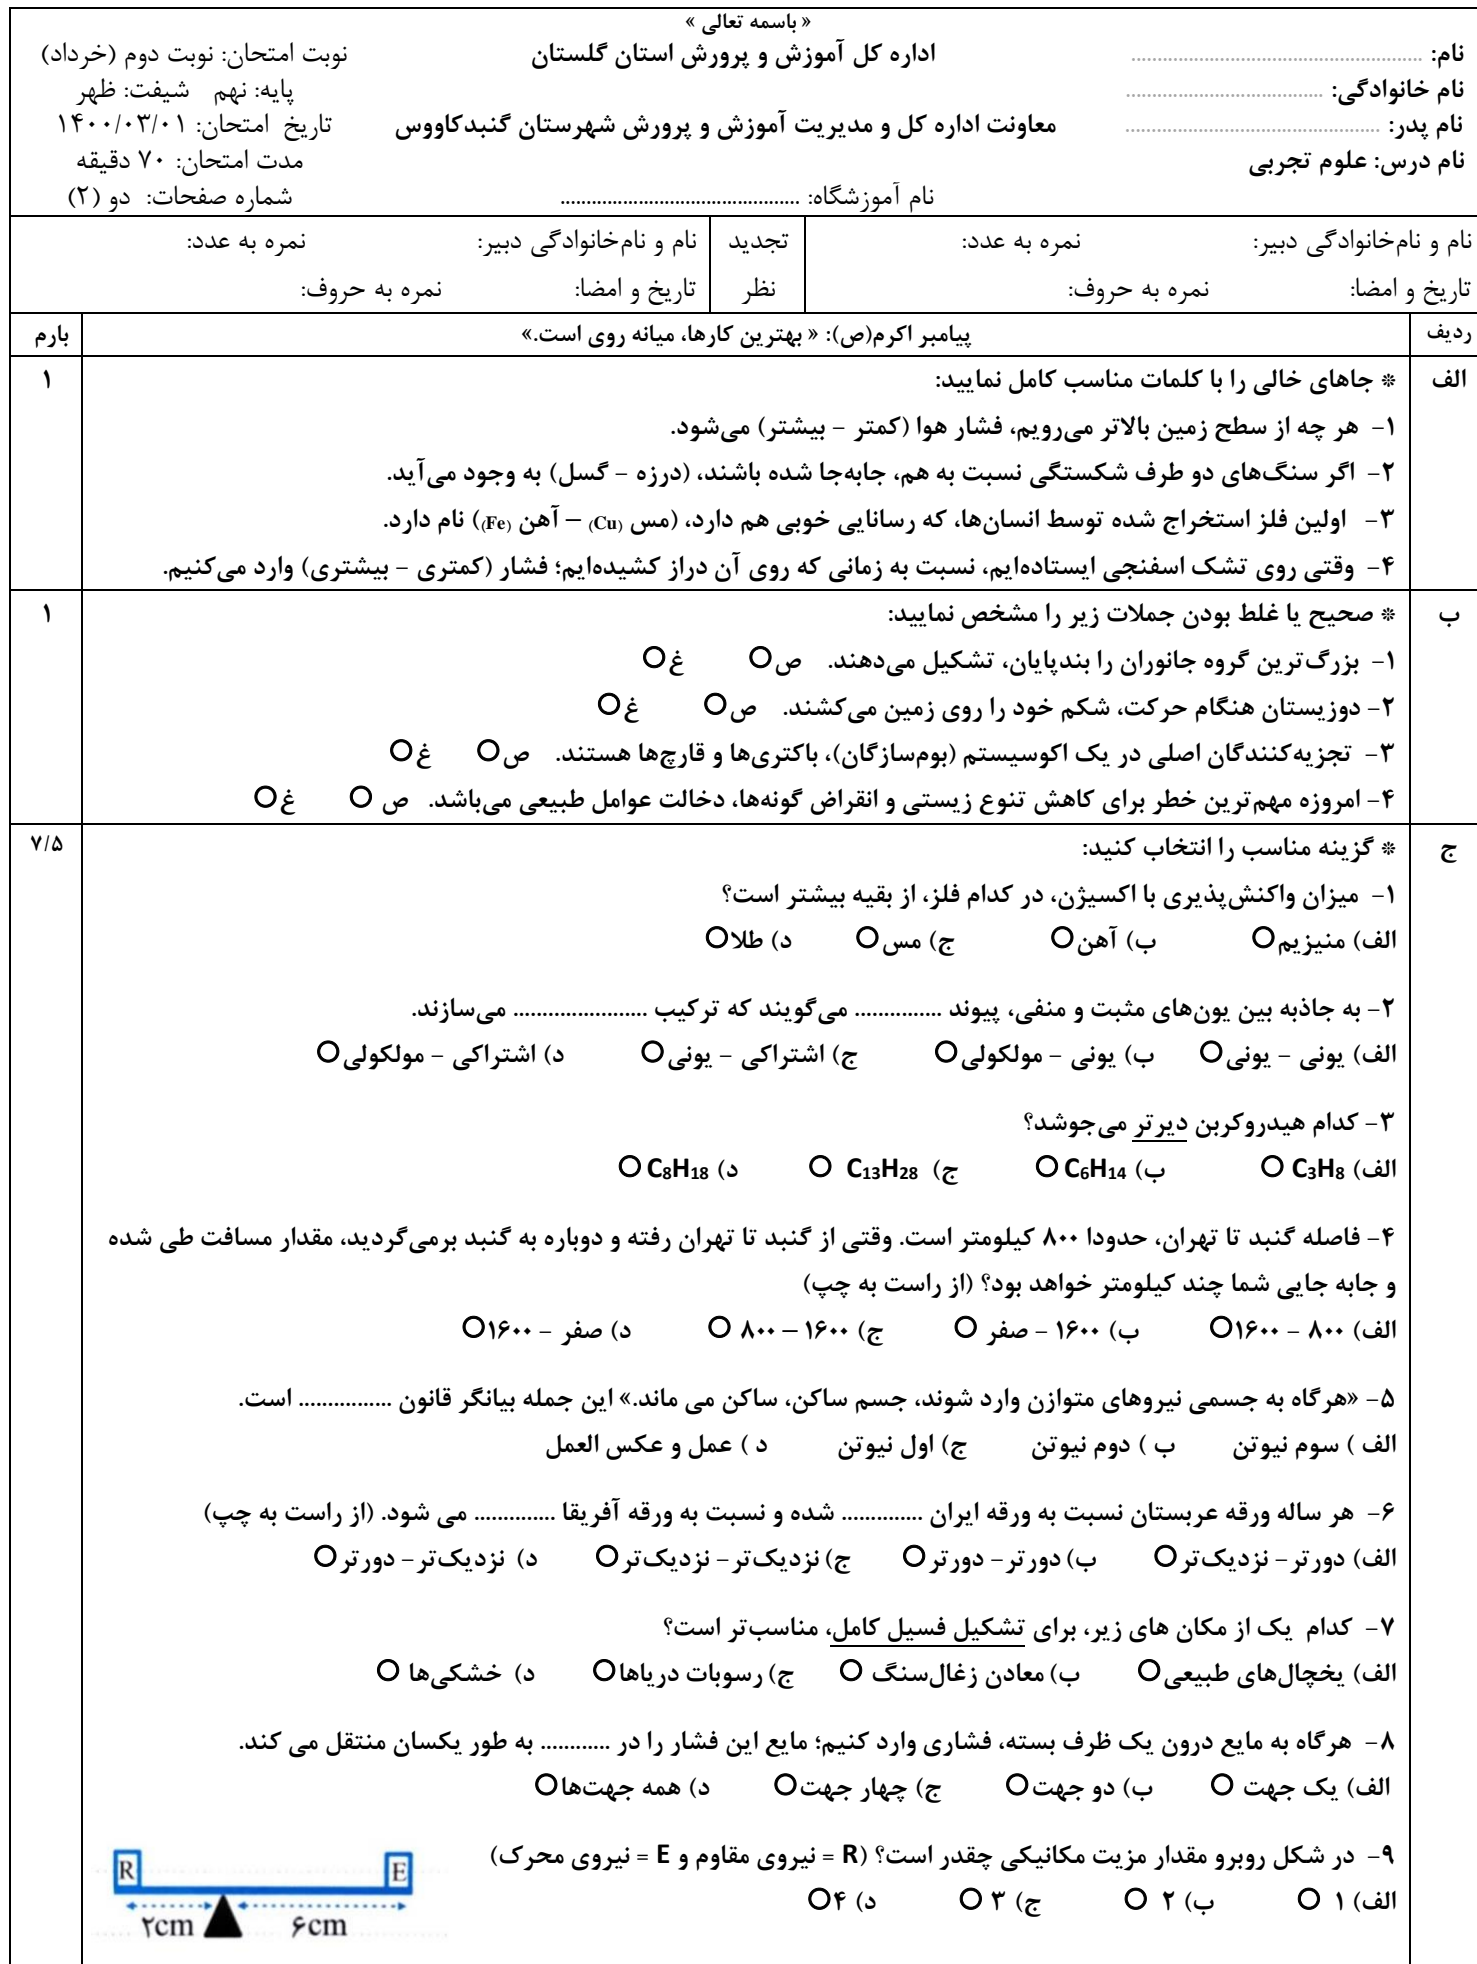 « باسمه تعالی »
نام: ........................................ اداره کل آموزش و پرورش استان گلستان نوبت امتحان: نوبت دوم (خرداد)
نام خانوادگی: ........................................ پایه: نهم شیفت: ظهر
نام پدر: ........................................ معاونت اداره کل و مدیریت آموزش و پرورش شهرستان گنبدکاووس تاریخ امتحان: ۱۴۰۰/۰۳/۰۱
نام درس: علوم تجربی مدت امتحان: ۷۰ دقیقه
نام آموزشگاه: ........................................ شماره صفحات: دو (۲)
نام و نام‌خانوادگی دبیر: نمره به عدد: تجدید نام و نام‌خانوادگی دبیر: نمره به عدد:
تاریخ و امضا: نمره به حروف: نظر تاریخ و امضا: نمره به حروف:
ردیف پیامبر اکرم(ص): « بهترین کارها، میانه روی است.» بارم
الف * جاهای خالی را با کلمات مناسب کامل نمایید: ۱
۱- هر چه از سطح زمین بالاتر می‌رویم، فشار هوا (کمتر - بیشتر) می‌شود.
۲- اگر سنگ‌های دو طرف شکستگی نسبت به هم، جابه‌جا شده باشند، (درزه - گسل) به وجود می‌آید.
۳- اولین فلز استخراج شده توسط انسان‌ها، که رسانایی خوبی هم دارد، (مس (Cu) – آهن (Fe)) نام دارد.
۴- وقتی روی تشک اسفنجی ایستاده‌ایم، نسبت به زمانی که روی آن دراز کشیده‌ایم؛ فشار (کمتری - بیشتری) وارد می‌کنیم.
ب * صحیح یا غلط بودن جملات زیر را مشخص نمایید: ۱
۱- بزرگ‌ترین گروه جانوران را بندپایان، تشکیل می‌دهند. ص غ
۲- دوزیستان هنگام حرکت، شکم خود را روی زمین می‌کشند. ص غ
۳- تجزیه‌کنندگان اصلی در یک اکوسیستم (بوم‌سازگان)، باکتری‌ها و قارچ‌ها هستند. ص غ
۴- امروزه مهم‌ترین خطر برای کاهش تنوع زیستی و انقراض گونه‌ها، دخالت عوامل طبیعی می‌باشد. ص غ
ج * گزینه مناسب را انتخاب کنید: ۷/۵
۱- میزان واکنش‌پذیری با اکسیژن، در کدام فلز، از بقیه بیشتر است؟
الف) منیزیم ب) آهن ج) مس د) طلا
۲- به جاذبه بین یون‌های مثبت و منفی، پیوند ............... می‌گویند که ترکیب ....................... می‌سازند.
الف) یونی - یونی ب) یونی - مولکولی ج) اشتراکی - یونی د) اشتراکی - مولکولی
۳- کدام هیدروکربن دیرتر می‌جوشد؟
الف) C₃H₈ ب) C₆H₁₄ ج) C₁₃H₂₈ د) C₈H₁₈
۴- فاصله گنبد تا تهران، حدودا ۸۰۰ کیلومتر است. وقتی از گنبد تا تهران رفته و دوباره به گنبد برمی‌گردید، مقدار مسافت طی شده
و جابه جایی شما چند کیلومتر خواهد بود؟ (از راست به چپ)
الف) ۸۰۰ - ۱۶۰۰ ب) ۱۶۰۰ - صفر ج) ۱۶۰۰ – ۸۰۰ د) صفر - ۱۶۰۰
۵- «هرگاه به جسمی نیروهای متوازن وارد شوند، جسم ساکن، ساکن می ماند.» این جمله بیانگر قانون ................ است.
الف ) سوم نیوتن ب ) دوم نیوتن ج) اول نیوتن د ) عمل و عکس العمل
۶- هر ساله ورقه عربستان نسبت به ورقه ایران .............. شده و نسبت به ورقه آفریقا .............. می شود. (از راست به چپ)
الف) دورتر- نزدیک‌تر ب) دورتر- دورتر ج) نزدیک‌تر- نزدیک‌تر د) نزدیک‌تر- دورتر
۷- کدام یک از مکان های زیر، برای تشکیل فسیل کامل، مناسب‌تر است؟
الف) یخچال‌های طبیعی ب) معادن زغال‌سنگ ج) رسوبات دریاها د) خشکی‌ها
۸- هرگاه به مایع درون یک ظرف بسته، فشاری وارد کنیم؛ مایع این فشار را در ............ به طور یکسان منتقل می کند.
الف) یک جهت ب) دو جهت ج) چهار جهت د) همه جهت‌ها
۹- در شکل روبرو مقدار مزیت مکانیکی چقدر است؟ (R = نیروی مقاوم و E = نیروی محرک)
الف) ۱ ب) ۲ ج) ۳ د) ۴
R E
۲cm ۶cm